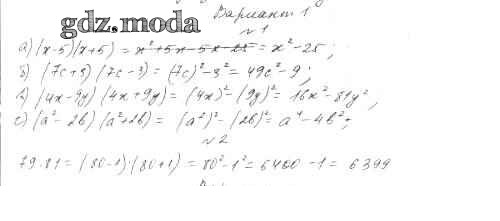 gdz.moda Вариант 1°
№1
а) (x-5)(x+5) = x²+5x-5x-25 = x²-25;
б) (7c+3)(7c-3) = (7c)²-3² = 49c²-9;
в) (4x-9y)(4x+9y) = (4x)²-(9y)² = 16x²-81y²;
с) (a²-2b)(a²+2b) = (a²)²-(2b)² = a⁴-4b²;
№2
79·81 = (80-1)·(80+1) = 80²-1² = 6400-1 = 6399